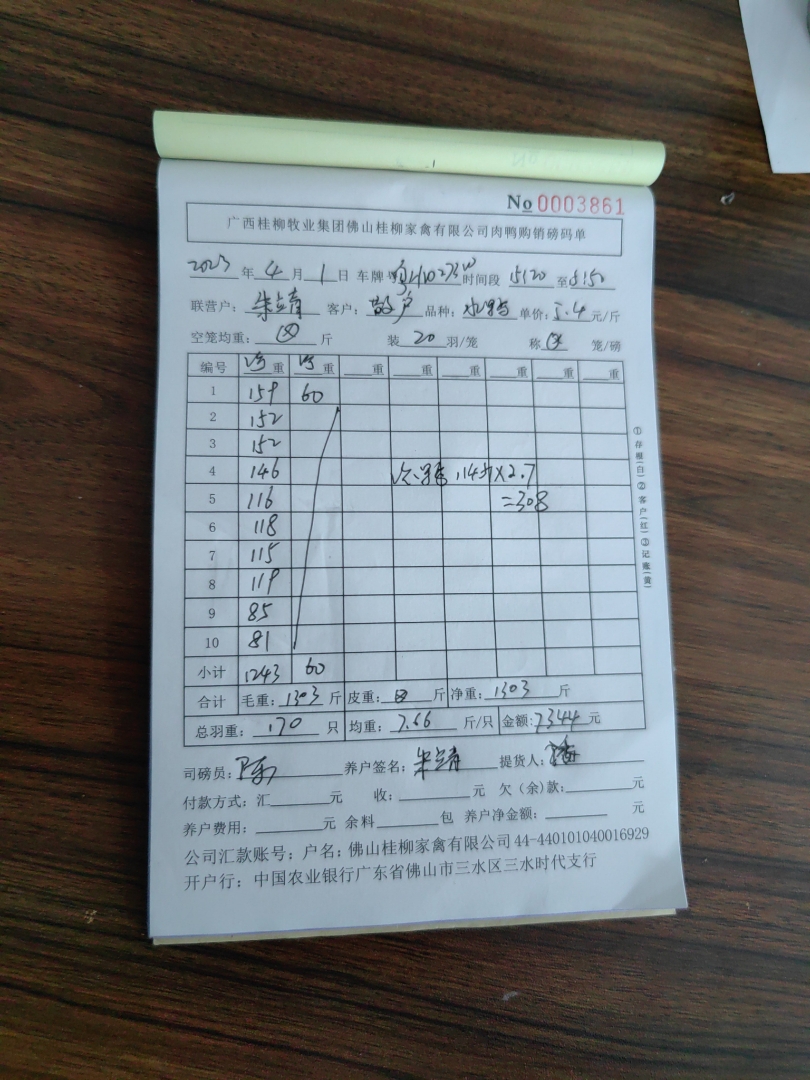 No 0003861
广西桂柳牧业集团佛山桂柳家禽有限公司肉鸭购销磅码单
2023 年 4 月 1 日 车牌 时间段 15:20 至 15:50
联营户: 朱靖 客户: 散户 品种: 水鸭 单价: 5.4 元/斤
空笼均重: 斤 装 20 羽/笼 称 笼/磅
编号 重 重 重 重 重 重 重 重
1 159 60
2 152
3 152
4 146 次鸭, 114斤×2.7
5 116 =308
6 118
7 115
8 119
9 85
10 81
小计 1243 60
合计 毛重: 1303 斤 皮重: 斤 净重: 1303 斤
总羽重: 170 只 均重: 7.66 斤/只 金额: 7344 元
司磅员: 陈 养户签名: 朱靖 提货人:
付款方式: 汇 元 收: 元 欠(余)款: 元
养户费用: 元 余料 包 养户净金额: 元
公司汇款账号: 户名: 佛山桂柳家禽有限公司 44-440101040016929
开户行: 中国农业银行广东省佛山市三水区三水时代支行
①存根(白)②客户(红)③记账(黄)